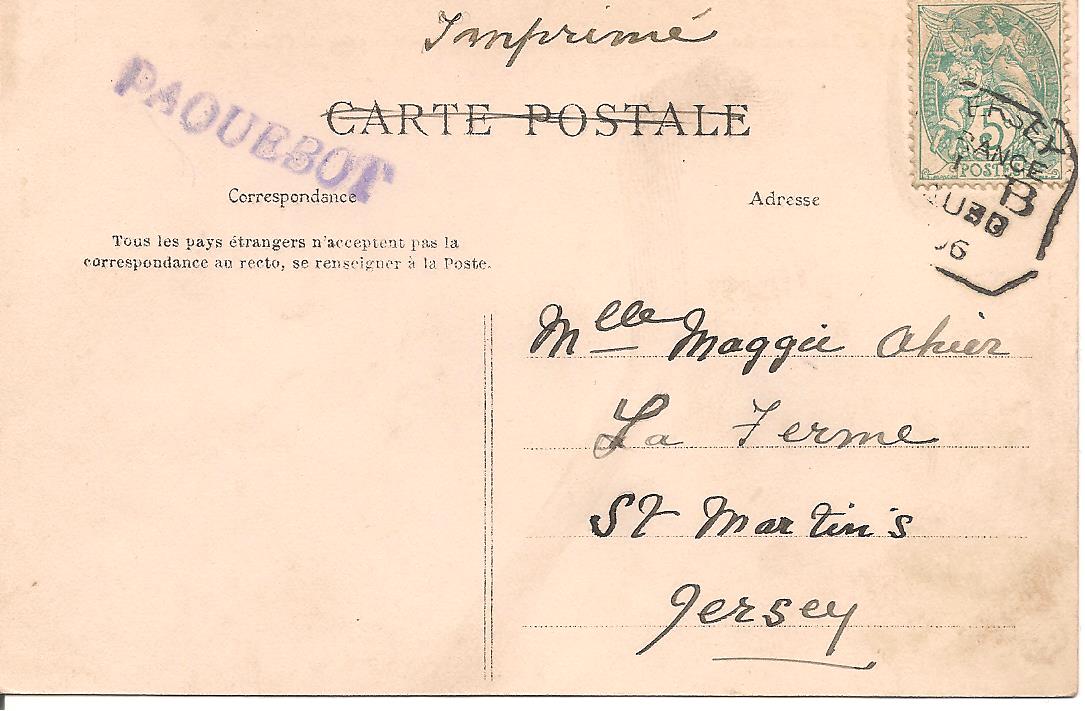 Imprimé
CARTE POSTALE
PAQUEBOT
Correspondance
Adresse
Tous les pays étrangers n'acceptent pas la
correspondance au recto, se renseigner à la Poste.
5
POSTES
ERSEY
RANCE
B
06
Mlle Maggie Ahier
La Ferme
St Martin's
Jersey